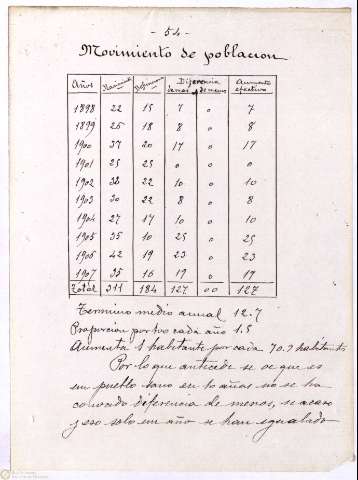 - 54 -
Movimiento de poblacion
Años Nacimientos Defunciones Diferencia de mas de menos Aumento efectivo
1898 22 15 7 0 7
1899 26 18 8 0 8
1900 37 20 17 0 17
1901 25 25 0 0 0
1902 32 22 10 0 10
1903 30 22 8 0 8
1904 27 17 10 0 10
1905 35 10 25 0 25
1906 42 19 23 0 23
1907 35 16 19 0 19
Total 311 184 127 00 127
Termino medio anual 12.7
Proporcion por % cada año 1.5
Aumenta 1 habitante por cada 70.7 habitantes
Por lo que antecede se ve que es
un pueblo sano en 10 años no se ha
conocido diferencia de menos, si acaso
y eso solo un año se han igualado